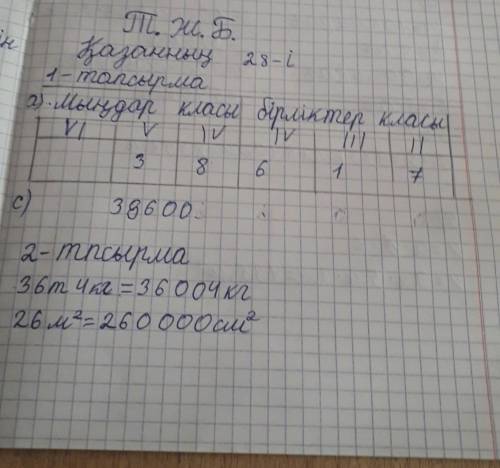 ін
Т. Ж. Б.
Қазанның 28-і
1-тапсырма
а). Мыңдар класы бірліктер класы
VI V IV IV III II
3 8 6 1 7
с) 38600
2-тпсырма
36т 4кг = 36004кг
26 м² = 260 000 см²